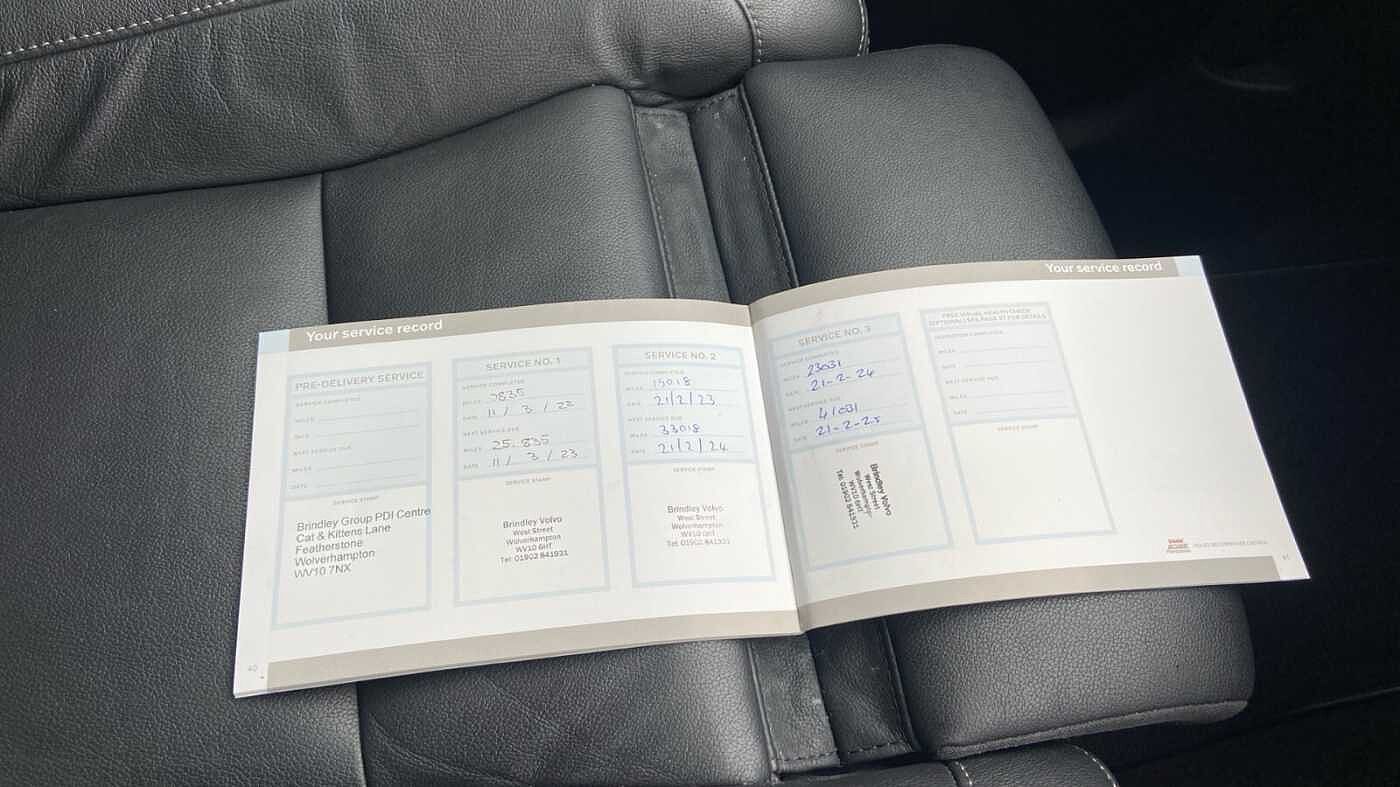 Your service record
PRE-DELIVERY SERVICE
SERVICE COMPLETED
MILES
DATE
NEXT SERVICE DUE
MILES
DATE
SERVICE STAMP
Brindley Group PDI Centre
Cat & Kittens Lane
Featherstone
Wolverhampton
WV10 7NX
40
SERVICE NO. 1
SERVICE COMPLETED
MILES 7835
DATE 11 / 3 / 22
NEXT SERVICE DUE
MILES 25.835
DATE 11 / 3 / 23
SERVICE STAMP
Brindley Volvo
West Street
Wolverhampton
WV10 6HT
Tel: 01902 841931
SERVICE NO. 2
SERVICE COMPLETED
MILES 15018
DATE 21/2/23
NEXT SERVICE DUE
MILES 33018
DATE 21/2/24
SERVICE STAMP
Brindley Volvo
West Street
Wolverhampton
WV10 6HT
Tel: 01902 841931
Your service record
SERVICE NO. 3
SERVICE COMPLETED
MILES 23031
DATE 21-2-24
NEXT SERVICE DUE
MILES 41031
DATE 21-2-25
SERVICE STAMP
Brindley Volvo
West Street
Wolverhampton
WV10 6HT
Tel: 01902 841931
FREE VISUAL HEALTH CHECK
(OPTIONAL) SEE PAGE 37 FOR DETAILS
INSPECTION COMPLETED
MILES
DATE
NEXT SERVICE DUE
MILES
DATE
SERVICE STAMP
41